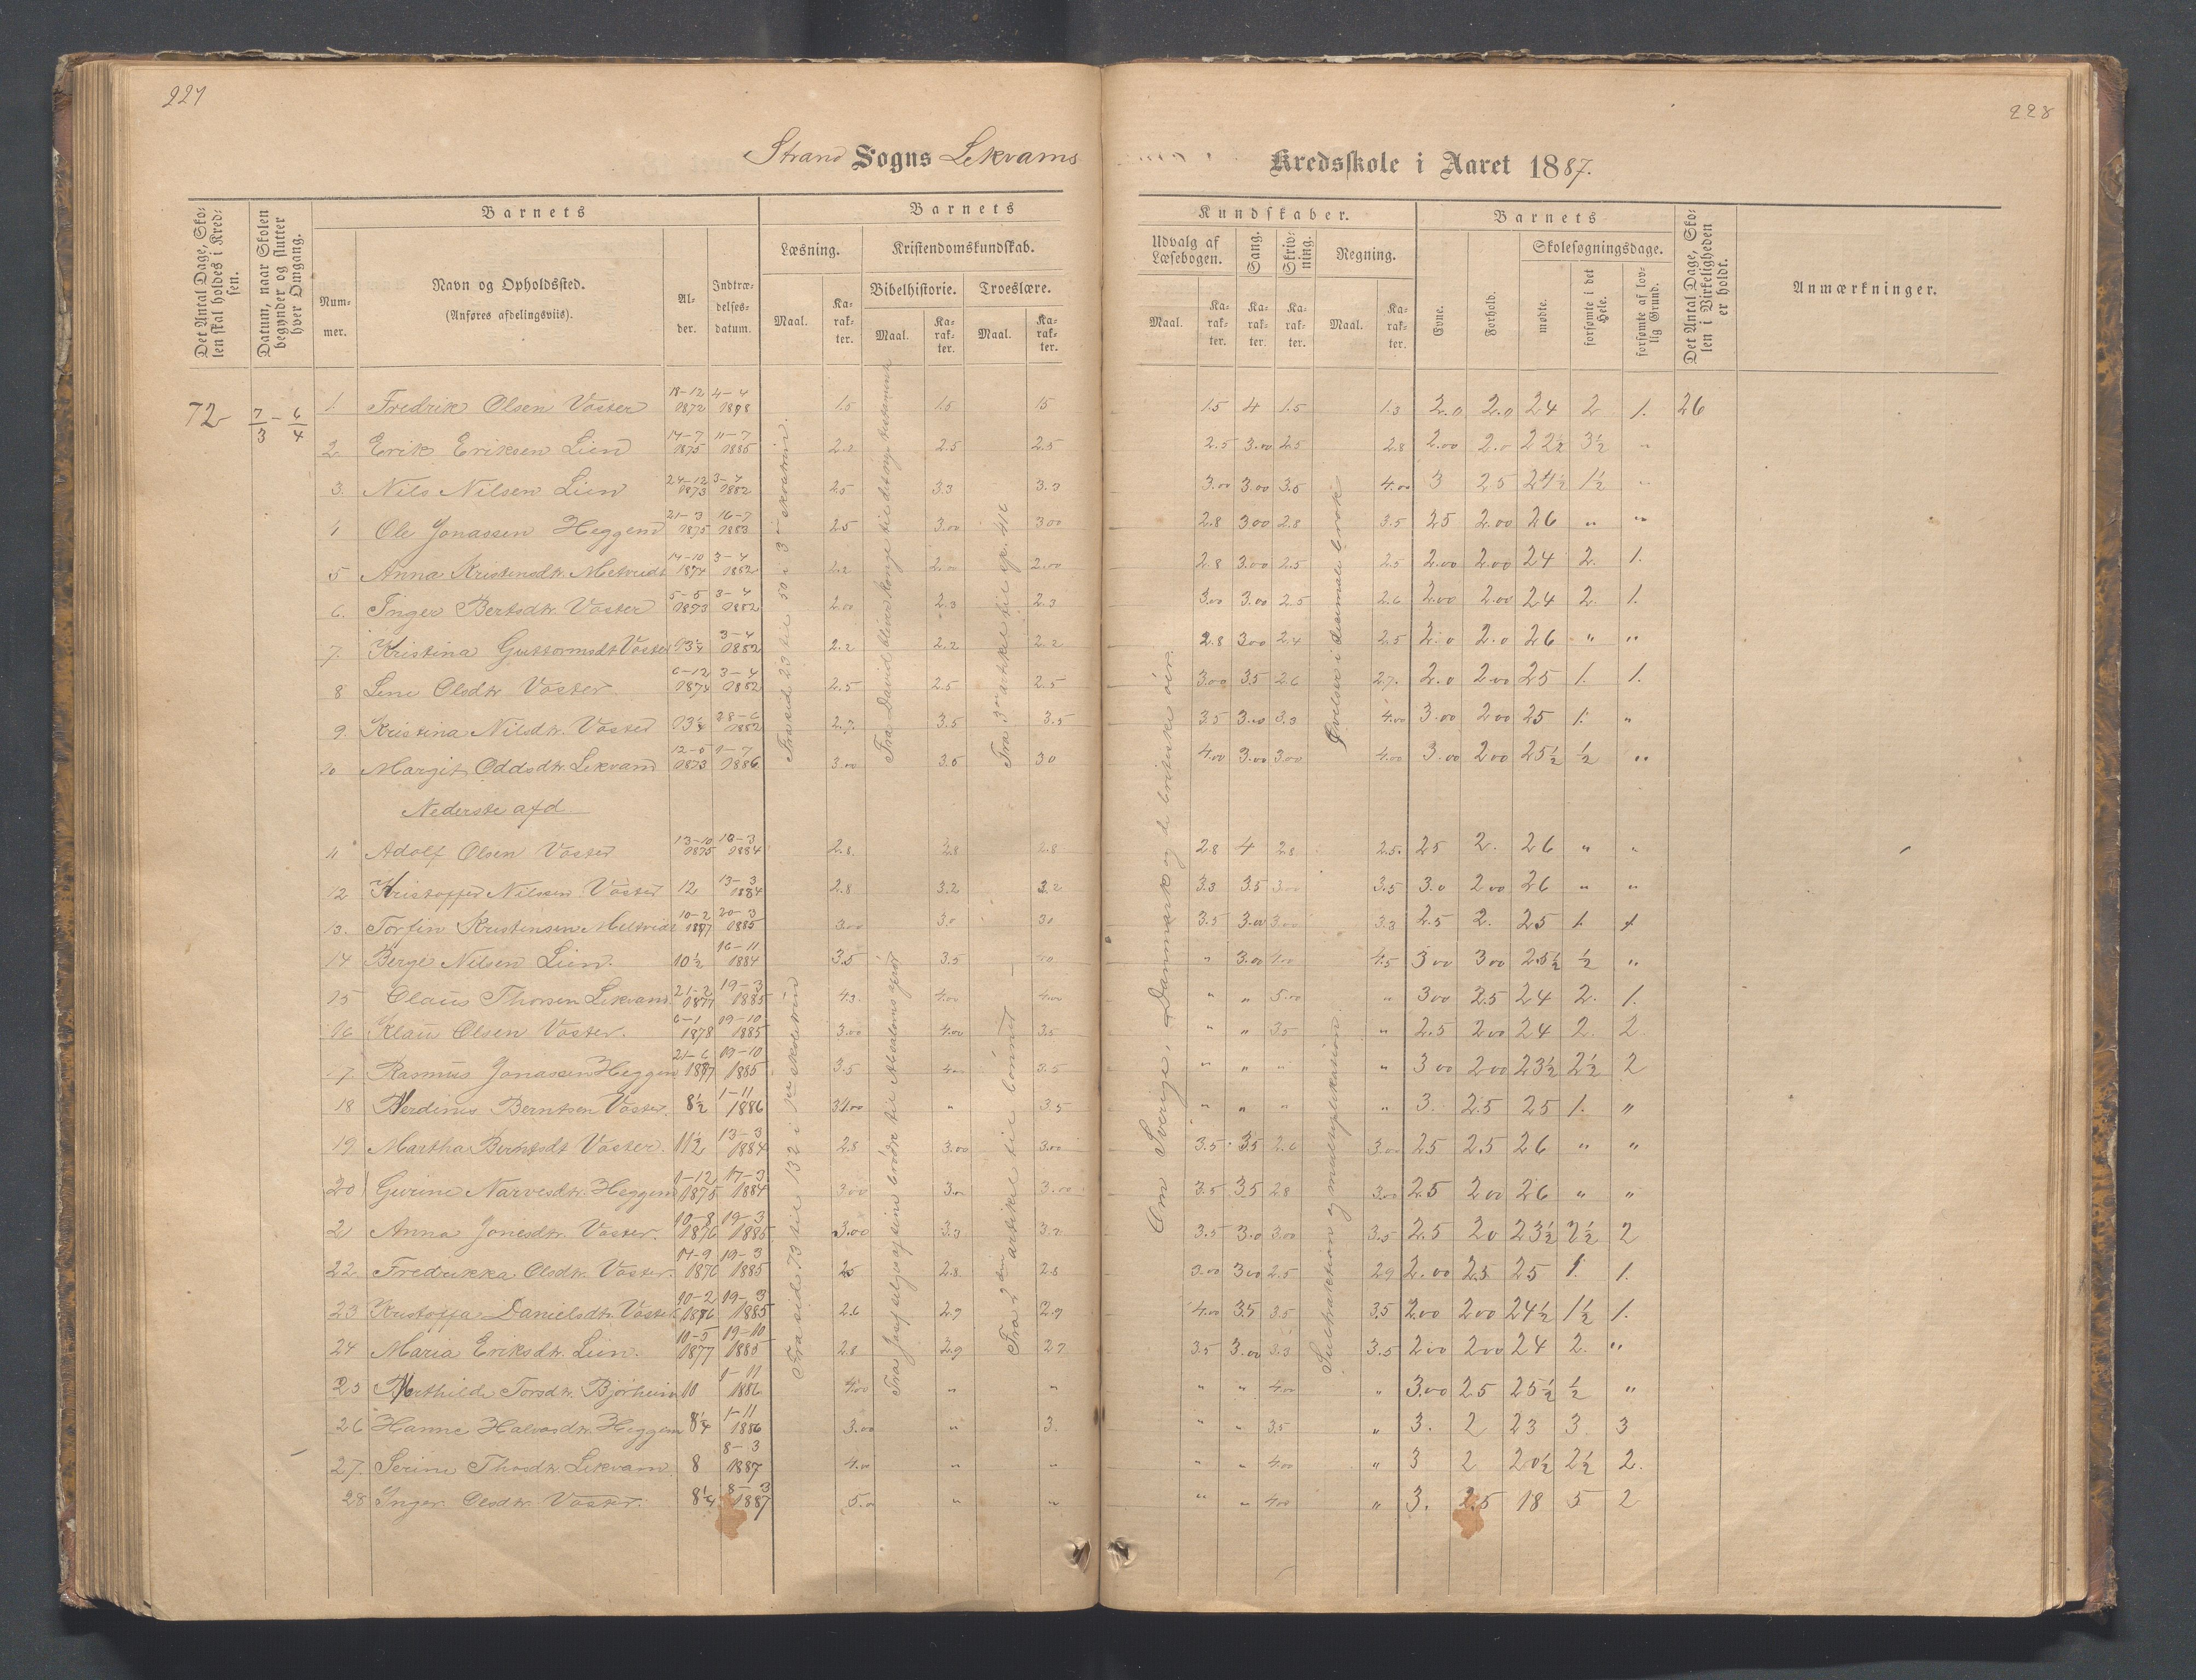 227
228
Strand Sogns Lekvams Kredsskole i Aaret 1887.
Det Antal Dage, Skolen skal holdes i Kredsen.
Datum, naar Skolen begynder og slutter hver Omgang.
Barnets
Nummer.
Navn og Opholdssted.
(Anføres afdelingsviis).
Alder.
Indtrædelsesdatum.
Barnets Kundskaber.
Læsning.
Maal.
Karakter.
Kristendomskundskab.
Bibelhistorie.
Maal.
Karakter.
Troeslære.
Maal.
Karakter.
Udvalg af Læsebogen.
Maal.
Karakter.
Sang.
Karakter.
Skrivning.
Karakter.
Regning.
Maal.
Karakter.
Barnets
Evne.
Forhold.
Skolesøgningsdage.
mødte.
forsømte i det Hele.
forsømte af lovlig Grund.
Det Antal Dage, Skolen i Virkeligheden er holdt.
Anmærkninger.
72 7/3 – 6/4 1. Fredrik Olsen Vaster 18-12 1872 4-4 1.5 1.5 15 1.5 4 1.5 1.3 2.0 2.0 24 2 1. 26
2 Erik Eriksen Lien 14-7 1875 11-7 1885 2.2 2.5 2.5 2.5 3.00 2.5 2.8 2.00 2.0 22½ 3½ "
3. Nils Nilsen Lien 24-12 1873 3-4 1882 2.5 3.3 3.3 3.00 3.00 3.5 4.00 3 25 24½ 1½ "
4 Ole Jonassen Heggem 21-3 1875 16-7 1883 2.5 3.00 300 2.8 300 2.8 3.5 25 2.00 26 " "
5 Anna Kristensdtr. 14-10 1874 3-4 1882 2.2 2.00 2.00 2.8 3.00 2.5 2.5 2.00 2.00 24 2. 1.
6. Inger Bertsdtr. Vaster 5-5 1873 3-4 1882 2.00 2.3 2.3 3.00 3.00 2.5 2.6 2.00 2.00 24 2. 1.
7. Kristina Guttormsdt Vaster 13¼ 3-4 1882 2.2 2.2 2.2 2.8 300 2.4 2.5 2.0 2.0 26 " "
8 Lene Olsdtr Vaster 6-12 1874 3-4 1882 2.5 2.5 2.5 3.00 3.5 2.6 2.7. 2.0 2.00 25 1. 1.
9. Kristina Nilsdtr. Vaster 13¼ 28-6 1882 2.7. 3.5 3.5 3.5 3.00 3.3 4.00 3.00 200 25 1. "
10 Margit Oddsdtr. Lekvam 12-5 1873 9-7 1886 3.00 3.5 30 4.00 3.00 3.00 4.00 3.00 200 25½ ½ "
Nederste afd
11 Adolf Olsen Vaster 13-10 1875 16-3 1884 2.8. 2.8 2.8 2.8 4 2.8 2.5. 25 2. 26 " "
12 Kristoffer Nilsen Vaster 12 13-3 1884 2.8 3.2 3.2 3.3 3.5 3.00 3.5 3.0 200 26 " "
13. Torfin Kristensen 10-2 1877 20-3 1885 3.00 3.0 30 3.5 3.00 3.00 3.3 2.5 2. 25 1. 1
14 Berge Nilsen Lien. 10½ 16-11 1884 3.5 3.5 40 " 3.00 4.00 4.5 300 300 25½ ½ "
15 Olaus Thorsen Lekvam. 21-2 1877 19-3 1885 4.3. 4.00 4.00 " " 5.00 " 300 2.5 24 2. 1.
16 Klaus Olsen Vaster. 6-1 1878 19-10 1885 3.00 4.00 3.5 " " 3.5 " 2.5 200 24 2. 2
17. Rasmus Jonassen Heggem 21-6 1877 19-10 1885 3.5 3.5 " " " " 300 200 23½ 2½ 2
18 Berntsen Vaster. 8½ 1-11 1886 " 3.5 " " " " 3. 2.5 25 1. "
19 Martha Berntsdt Vaster. 11½ 13-3 1884 2.8 3.00 3.00 3.5 35 2.6 3.00 25 2.5 26 " "
20 Gurine Narvesdtr. Heggem 9-12 1875 17-3 1884 300 3.00 3.00 3.5 3.5 2.8 3.00 2.5 200 26 " "
21 Anna Jonesdtr. Vaster. 10-8 1876 19-3 1885 3.00 3.3 3.2 3.5 3.0 3.00 3.5 2.5 20 23½ 2½ 2
22 Fredrikka Olsdtr. Vaster. 14-9 1876 19-3 1885 25 2.8. 2.8 3.00 300 2.5 29 2.00 2.5 25 1. 1.
23 Kristoffa Danielsdtr. Vaster 10-2 1876 19-3 1885 2.6 2.9 2.9 4.00 3.5 3.5 3.5 200 200 24½ 1½ 1.
24 Maria Eriksdtr. Lien. 10-5 1877 19-10 1885 2.8 2.9 29 3.5 3.00 3.3 3.5 200 200 24 2. "
25 Torsdtr. Bjørheim 10 1-11 1886 4.00 " " " " 4.00 " 3.00 2.5 25½ ½ "
26 Hanne Halvosdtr. Heggem 8¼ 1-11 1886 3.00 " 3. " " 3.5 " 3. 2 23 3. 3
27. Serine Thosdtr. Lekvam. 8 8-3 1887 4.00 " " " " 4.00 " 3 2 20½ 2½ 2.
28 Inger Olsdtr Vaster. 8¼ 8-3 1887 5.0 " " " " 4.00 " 3. 2.5 18 5 2
Fra side 23 til 50 i 3
Fra David bliver konge til det nye testamente
Fra 3die artikel til sp. 416
Øvelser i desimalebrøk
Fra side 73 til 132 i skoletrin
Fra Josef sælges af sine brødre til Absaloms oprør
Fra 2den artikel til bønnen
Om Sverige, Danmark og de britiske øer.
Subtraktion og multiplikasion.